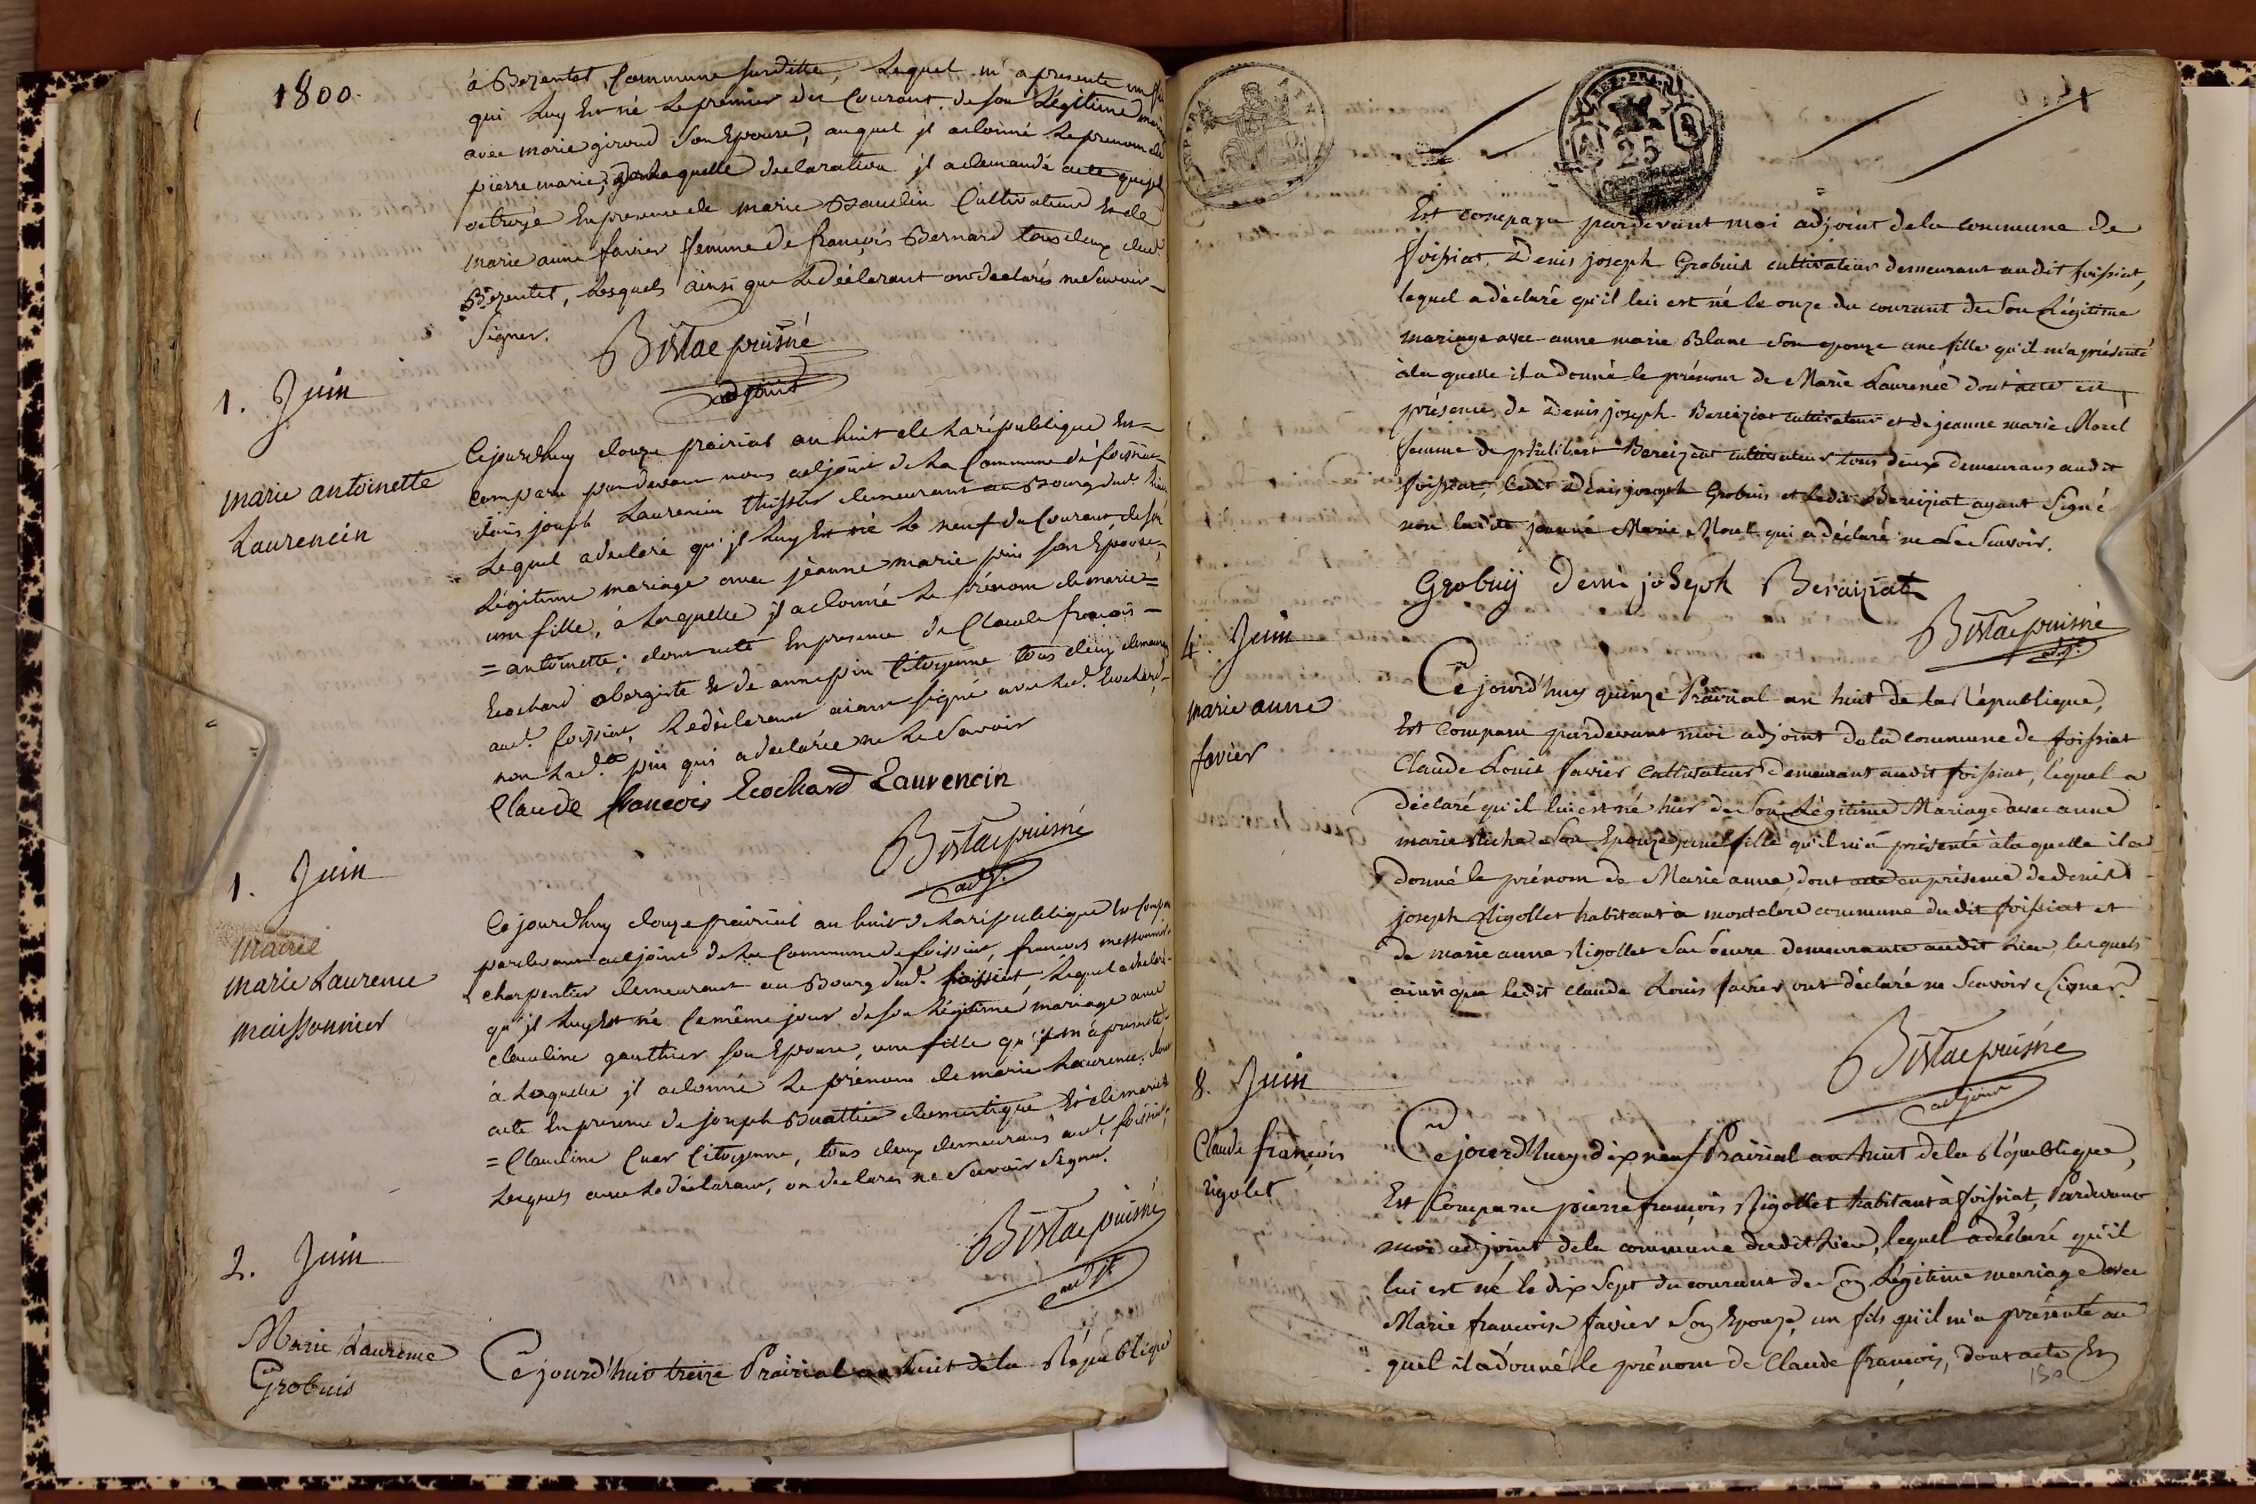 1800.
à Bezentet Commune susditte, Lequel m'a presenté un fils
qui Luy Est né Le premier du Courant de son Légitime mariage
avec marie giroud son Epouse, auquel jl adonné Le prenom de
pierre marie; de Laquelle declaration jl a demandé acte que j'ay
octroyé En presence de marie Baudin Cultivateur Et de
marie anne favier femme de françois Bernard tous deux dud.
Bezentet, Lesquels ainsi que Le déclarant on declarés ne Savoir
Signer.
Bistac puisné
adjoint
1. Juin
marie antoinette
Laurencin
Cejourdhuy douze prairial an huit de La république Est
comparu pardevant nous adjoint de La Commune de foissiat
denis joseph Laurencin thissier demeurant au Bourg dud. Lieu
Lequel a declaré qu'jl Luy Est né Le neuf du Courant de son
Légitime mariage avec jeanne marie pin son Epouse,
une fille, à Laquelle jl adonné Le prénom de marie=
=antoinette; dont acte En presence de Claude françois
Ecochard obergiste Et de anne pin Citoyenne tous deux demeurants
aud. foissiat, Le déclarant aiant signé avec Led. Ecochard,
non Lad.te pin qui a declarée ne Le Savoir
Claude francois Ecochard Laurencin
Bistac puisné
adjt.
1. Juin
marie
marie Laurence
maissonnier
Cejourdhuy douze prairial an huit de La république Est Comparu
pardevant adjoint de La Commune de foissiat, francois messonnier
charpentier demeurant au Bourg dud. foissiat, Lequel a declaré
qu'jl Luy Est né Ce même jour de son Légitime mariage avec
claudine gauthier son Epouse, une fille qu'jl m'a presenté
à Laquelle jl adonné Le prénom de marie Laurence, dont
acte En presence de joseph Buathier domestique, Et de marie
=Claudine Cuer Citoyenne, tous deux demeurans aud. foissiat,
Lesquels avec Le déclarant, on declarés ne Savoir Signer.
Bistac puisné
adjt.
2. Juin
Marie Laurence
Grobuis
Ce jourd'hui treize Prairial an huit de la République
REP. FRA.
25
Est comparu pardevant moi adjoint de la commune de
foissiat Denis joseph Grobuis cultivateur demeurant audit foissiat,
lequel a déclaré qu'il lui est né le onze du courant de son Légitime
mariage avec anne marie Blanc son epouze une fille qu'il m'a présenté
à la quelle il a donné le prénom de Marie Laurence dont acte en
présence de Denis joseph Bereiziat cultivateur et de jeanne marie Morel
femme de philibert Bereiziat cultivateur tous deux demeurans audit
foissiat, ledit Denis joseph Grobuis et ledit Bereiziat ayant Signé
non ladite jeanne Marie Morel qui a déclaré ne Le Scavoir.
Grobuy deni joseph Beraiziat
Bistac puisné
adjt.
4. Juin
marie anne
favier
Ce jourd'huy quinze Prairial an huit de la République,
Est Comparu pardevant moi adjoint de la commune de foissiat
Claude Louis favier cultivateur demeurant audit foissiat, lequel a
déclaré qu'il lui est né hier de Son Légitime Mariage avec anne
marie Son Epouze une fille qu'il m'a présenté à la quelle il a
donné le prénom de Marie anne, dont acte en présence de denis
joseph Rigollet habitant à montclere commune dudit foissiat et
de marie anne Rigollet Sa Soeure demeurante audit Lieu, lesquels
ainsi que ledit Claude Louis favier ont déclaré ne Scavoir Signer.
Bistac puisné
adjoint
8. Juin
Claude françois
rigolet
Ce jourd'huy dix neuf Prairial an huit de la République,
Est Comparu pierre françois Rigollet habitant à foissiat, Pardevant
moi adjoint de la commune dudit Lieu, lequel a déclaré qu'il
lui est né le dix Sept du courant de Son Légitime mariage avec
Marie francoise favier Son Epouze, un fils qu'il m'a présenté au
quel il a donné le prénom de Claude françois, dont acte En
150